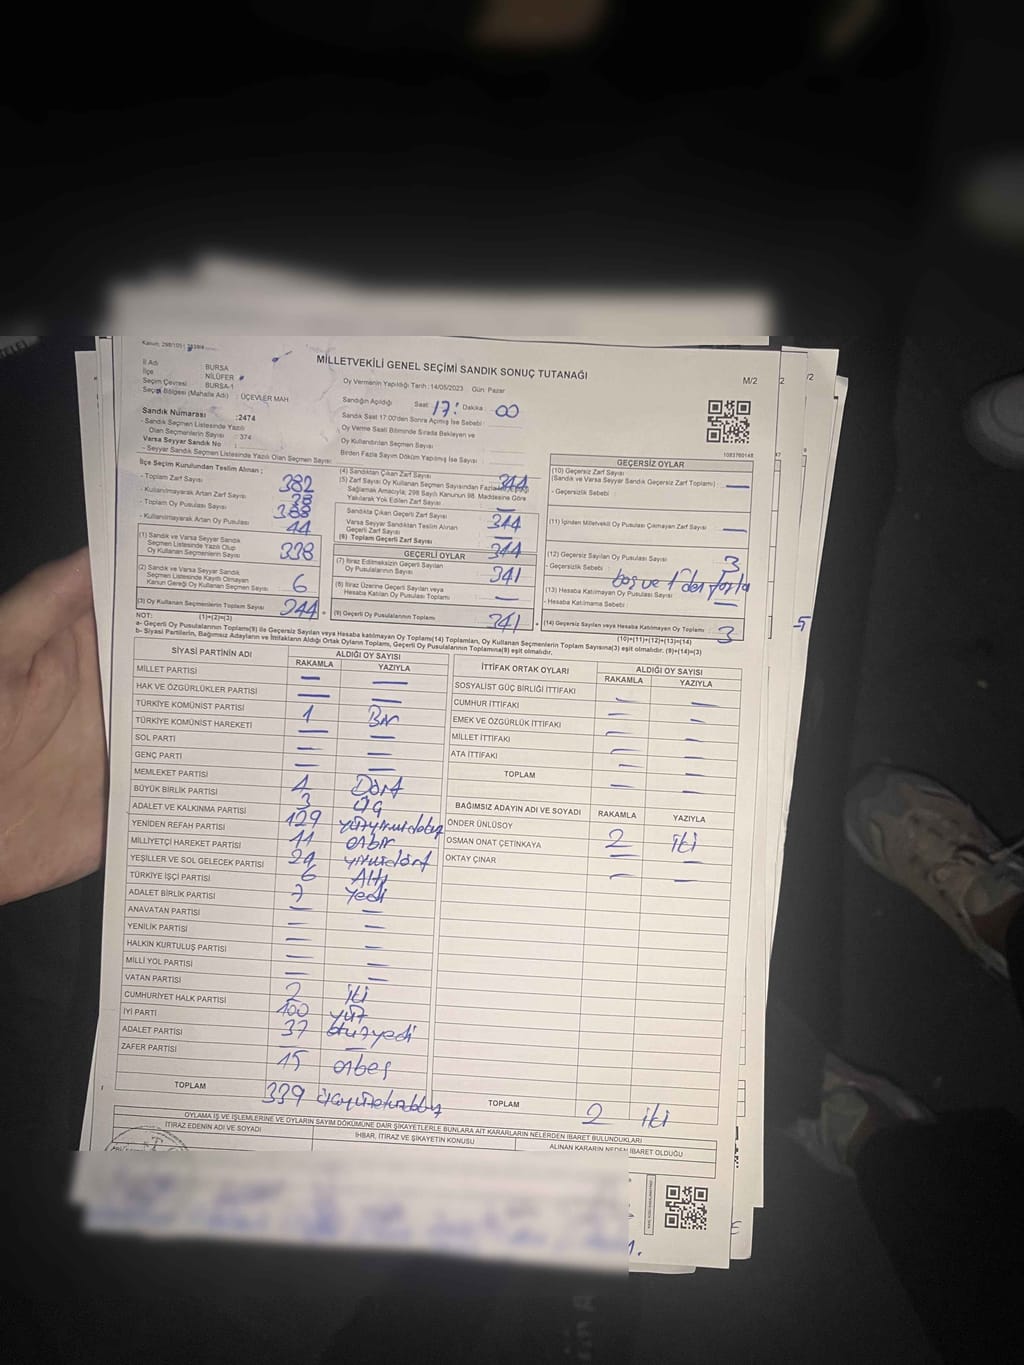 MİLLETVEKİLİ GENEL SEÇİMİ SANDIK SONUÇ TUTANAĞI
M/2
İl Adı : BURSA
İlçe : NİLÜFER
Seçim Çevresi : BURSA-1
Seçim Bölgesi (Mahalle Adı) : ÜÇEVLER MAH
Sandık Numarası : 2474
- Sandık Seçmen Listesinde Yazılı
Olan Seçmenlerin Sayısı : 374
Varsa Seyyar Sandık No
- Seyyar Sandık Seçmen Listesinde Yazılı Olan Seçmen Sayısı:
Oy Vermenin Yapıldığı Tarih :14/05/2023 Gün: Pazar
Sandığın Açıldığı Saat: 17: Dakika: 00
Sandık Saat 17:00'den Sonra Açılmış İse Sebebi
Oy Verme Saati Bitiminde Sırada Bekleyen ve
Oy Kullandırılan Seçmen Sayısı
Birden Fazla Sayım Döküm Yapılmış İse Sayısı
1083760148
İlçe Seçim Kurulundan Teslim Alınan ;
- Toplam Zarf Sayısı : 382
- Kullanılmayarak Artan Zarf Sayısı : 38
- Toplam Oy Pusulası Sayısı : 388
- Kullanılmayarak Artan Oy Pusulası : 44
(1) Sandık ve Varsa Seyyar Sandık
Seçmen Listesinde Yazılı Olup
Oy Kullanan Seçmenlerin Sayısı : 338
(2) Sandık ve Varsa Seyyar Sandık
Seçmen Listesinde Kayıtlı Olmayan
Kanun Gereği Oy Kullanan Seçmen Sayısı : 6
(3) Oy Kullanan Seçmenlerin Toplam Sayısı 344
(1)+(2)=(3)
(4) Sandıktan Çıkan Zarf Sayısı : 344
(5) Zarf Sayısı Oy Kullanan Seçmen Sayısından Fazla
Sağlamak Amacıyla; 298 Sayılı Kanunun 98. Maddesine Göre
Yakılarak Yok Edilen Zarf Sayısı : —
Sandıkta Çıkan Geçerli Zarf Sayısı : 344
Varsa Seyyar Sandıktan Teslim Alınan
Geçerli Zarf Sayısı : —
(6) Toplam Geçerli Zarf Sayısı : 344
GEÇERLİ OYLAR
(7) İtiraz Edilmeksizin Geçerli Sayılan
Oy Pusulalarının Sayısı : 341
(8) İtiraz Üzerine Geçerli Sayılan veya
Hesaba Katılan Oy Pusulası Toplamı : —
(9) Geçerli Oy Pusulalarının Toplamı : 341
GEÇERSİZ OYLAR
(10) Geçersiz Zarf Sayısı
(Sandık ve Varsa Seyyar Sandık Geçersiz Zarf Toplamı) : —
- Geçersizlik Sebebi :
(11) İçinden Milletvekili Oy Pusulası Çıkmayan Zarf Sayısı : —
(12) Geçersiz Sayılan Oy Pusulası Sayısı : 3
- Geçersizlik Sebebi : boş ve 1'den fazla
(13) Hesaba Katılmayan Oy Pusulası Sayısı : —
- Hesaba Katılmama Sebebi :
(14) Geçersiz Sayılan veya Hesaba Katılmayan Oy Toplamı : 3
(10)+(11)+(12)+(13)=(14)
NOT:
a- Geçerli Oy Pusulalarının Toplamı(9) ile Geçersiz Sayılan veya Hesaba katılmayan Oy Toplamı(14) Toplamları, Oy Kullanan Seçmenlerin Toplam Sayısına(3) eşit olmalıdır. (9)+(14)=(3)
b- Siyasi Partilerin, Bağımsız Adayların ve İttifakların Aldığı Ortak Oyların Toplamı, Geçerli Oy Pusulalarının Toplamına(9) eşit olmalıdır.
SİYASİ PARTİNİN ADI ALDIĞI OY SAYISI
RAKAMLA YAZIYLA
MİLLET PARTİSİ — —
HAK VE ÖZGÜRLÜKLER PARTİSİ — —
TÜRKİYE KOMÜNİST PARTİSİ 1 Bir
TÜRKİYE KOMÜNİST HAREKETİ — —
SOL PARTİ — —
GENÇ PARTİ — —
MEMLEKET PARTİSİ 4 Dört
BÜYÜK BİRLİK PARTİSİ 3 üç
ADALET VE KALKINMA PARTİSİ 129 yüzyirmidokuz
YENİDEN REFAH PARTİSİ 11 onbir
MİLLİYETÇİ HAREKET PARTİSİ 24 yirmidört
YEŞİLLER VE SOL GELECEK PARTİSİ 6 Altı
TÜRKİYE İŞÇİ PARTİSİ 7 yedi
ADALET BİRLİK PARTİSİ — —
ANAVATAN PARTİSİ — —
YENİLİK PARTİSİ — —
HALKIN KURTULUŞ PARTİSİ — —
MİLLİ YOL PARTİSİ — —
VATAN PARTİSİ 2 iki
CUMHURİYET HALK PARTİSİ 100 yüz
İYİ PARTİ 37 otuzyedi
ADALET PARTİSİ — —
ZAFER PARTİSİ 15 onbeş
TOPLAM 339 üçyüzotuzdokuz
İTTİFAK ORTAK OYLARI ALDIĞI OY SAYISI
RAKAMLA YAZIYLA
SOSYALİST GÜÇ BİRLİĞİ İTTİFAKI — —
CUMHUR İTTİFAKI — —
EMEK VE ÖZGÜRLÜK İTTİFAKI — —
MİLLET İTTİFAKI — —
ATA İTTİFAKI — —
TOPLAM — —
BAĞIMSIZ ADAYIN ADI VE SOYADI RAKAMLA YAZIYLA
ÖNDER ÜNLÜSOY 2 iki
OSMAN ONAT ÇETİNKAYA — —
OKTAY ÇINAR — —
TOPLAM 2 iki
OYLAMA İŞ VE İŞLEMLERİNE VE OYLARIN SAYIM DÖKÜMÜNE DAİR ŞİKAYETLERLE BUNLARA AİT KARARLARIN NELERDEN İBARET BULUNDUKLARI
İTİRAZ EDENİN ADI VE SOYADI
İHBAR, İTİRAZ VE ŞİKAYETİN KONUSU
ALINAN KARARIN NEDEN İBARET OLDUĞU